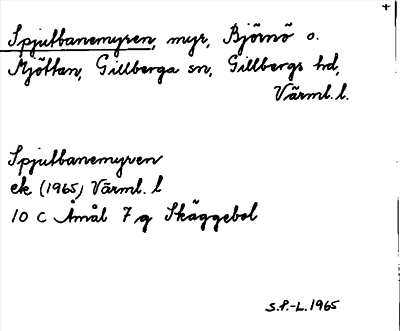 Spjutbanemyren, myr, Björnö o.
Mjöttan, Gillberga sn, Gillbergs hd,
Värml. l.
Spjutbanemyren
ek (1965) Värml. l
10 C Åmål 7 g Skäggebol
S.P.-L. 1965